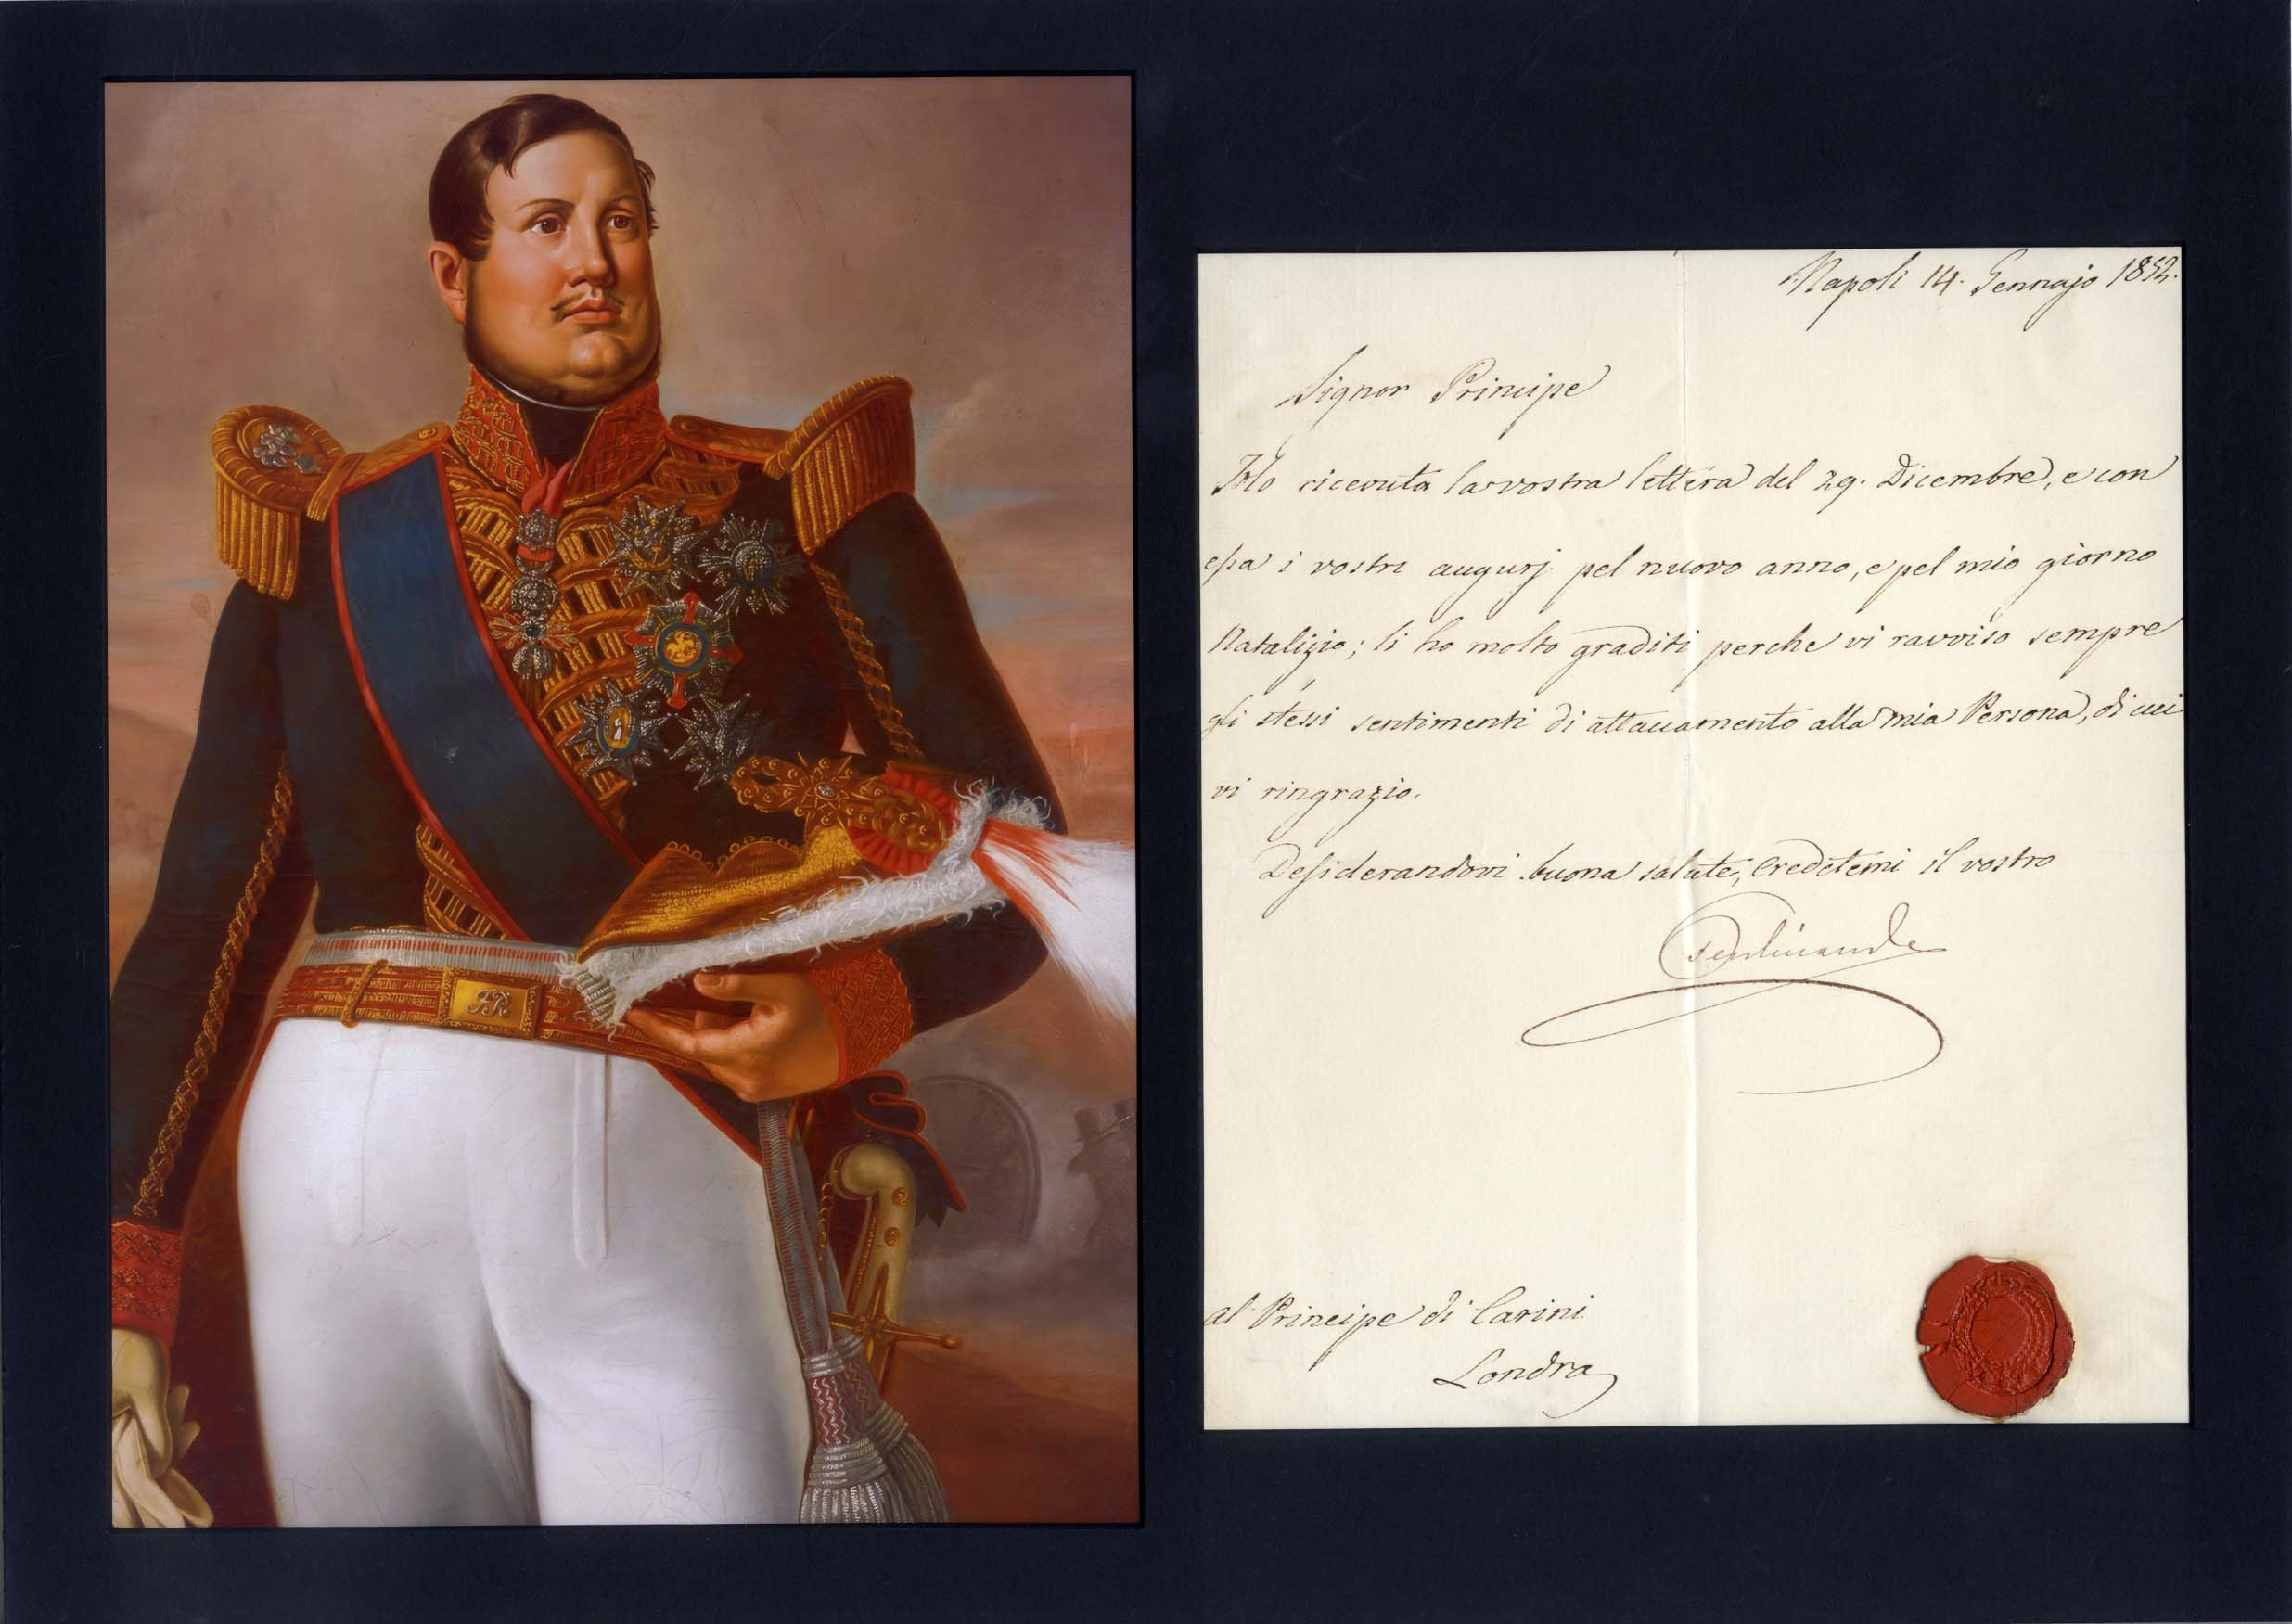 FR
Napoli 14. Gennajo 1852.
Signor Principe
Ho ricevuta la vostra lettera del 29. Dicembre, e con
essa i vostri augurj pel nuovo anno, e pel mio giorno
Natalizio; li ho molto graditi perche vi ravviso sempre
gli stessi sentimenti di attaccamento alla mia Persona, di cui
vi ringrazio.
Desiderandovi buona salute, credetemi il vostro
Ferdinando
al Principe di Carini
Londra